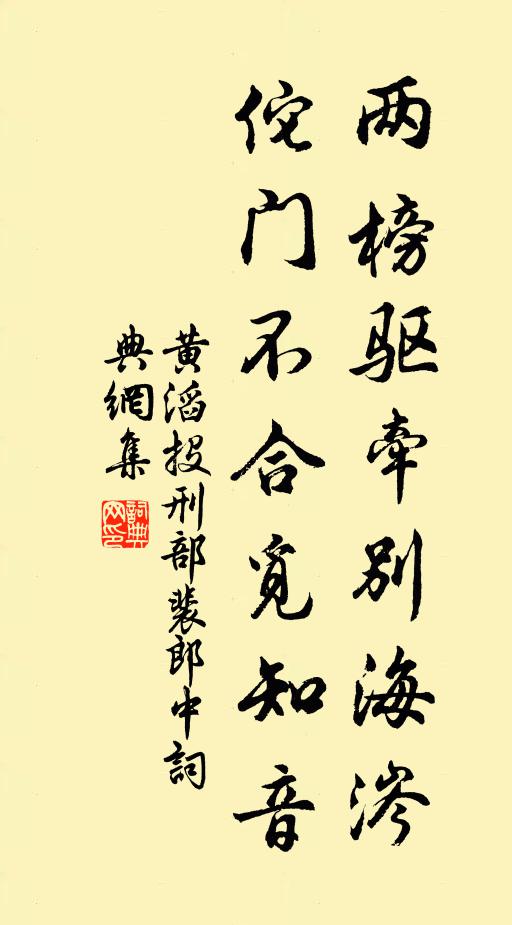 两榜驱牵别海涔
佗门不合觅知音
黄滔投刑部裴郎中詞
典網集
詞典网印